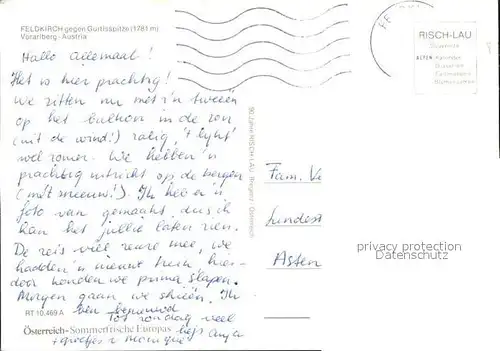 FELDKIRCH gegen Gurtisspitze (1781 m)
Vorarlberg - Austria
Hallo allemaal!
Het is hier prachtig!
We zitten nu met z'n tweeën
op het balkon in de zon
(uit de wind!) zalig, 't lijkt
wel zomer. We hebben 'n
prachtig uitzicht op de bergen
(mét sneeuw!). Ik heb er 'n
foto van gemaakt, dus ik
kan het jullie laten zien.
De reis viel reuze mee, we
hadden 'n trein hier-
door konden we prima slapen.
Morgen gaan we skieën. Ik
ben benieuwd
Tot zondag veel
liefs Anya
+ groetjes v Monique
RT 10.469 A
Österreich-Sommerfrische Europas
RISCH-LAU
Souvenirs
ALPEN Kalender
Fam. Ve
Lindest
Asten
privacy protection
Datenschutz